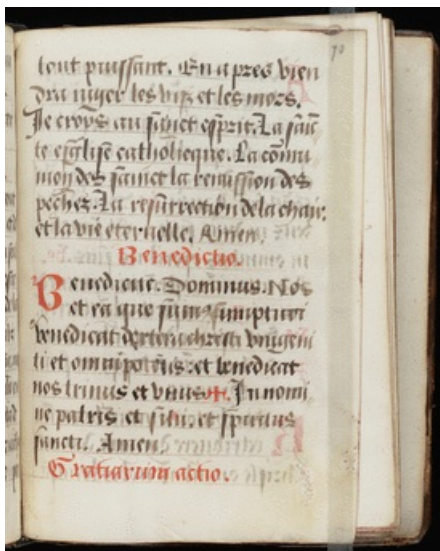 70
tout puissant. En apres vien
dra iuger les vifz et les mors.
Je croys au sainct esprit. La saic
te eglise catholicque. La comu
nion des sainct la remission des
pechez. La resurrection de la chair.
et la vie eternelle. Amen.
Benedictio.
Benedicite. Dominus. Nos
et ea que sum sumpturi
benedicat dextera christi vnigeni
ti et omnipotens. et benedicat
nos trinus et vnus. In nomi
ne patris et filii. et spiritus
sancti. Amen
Gratiarum actio.